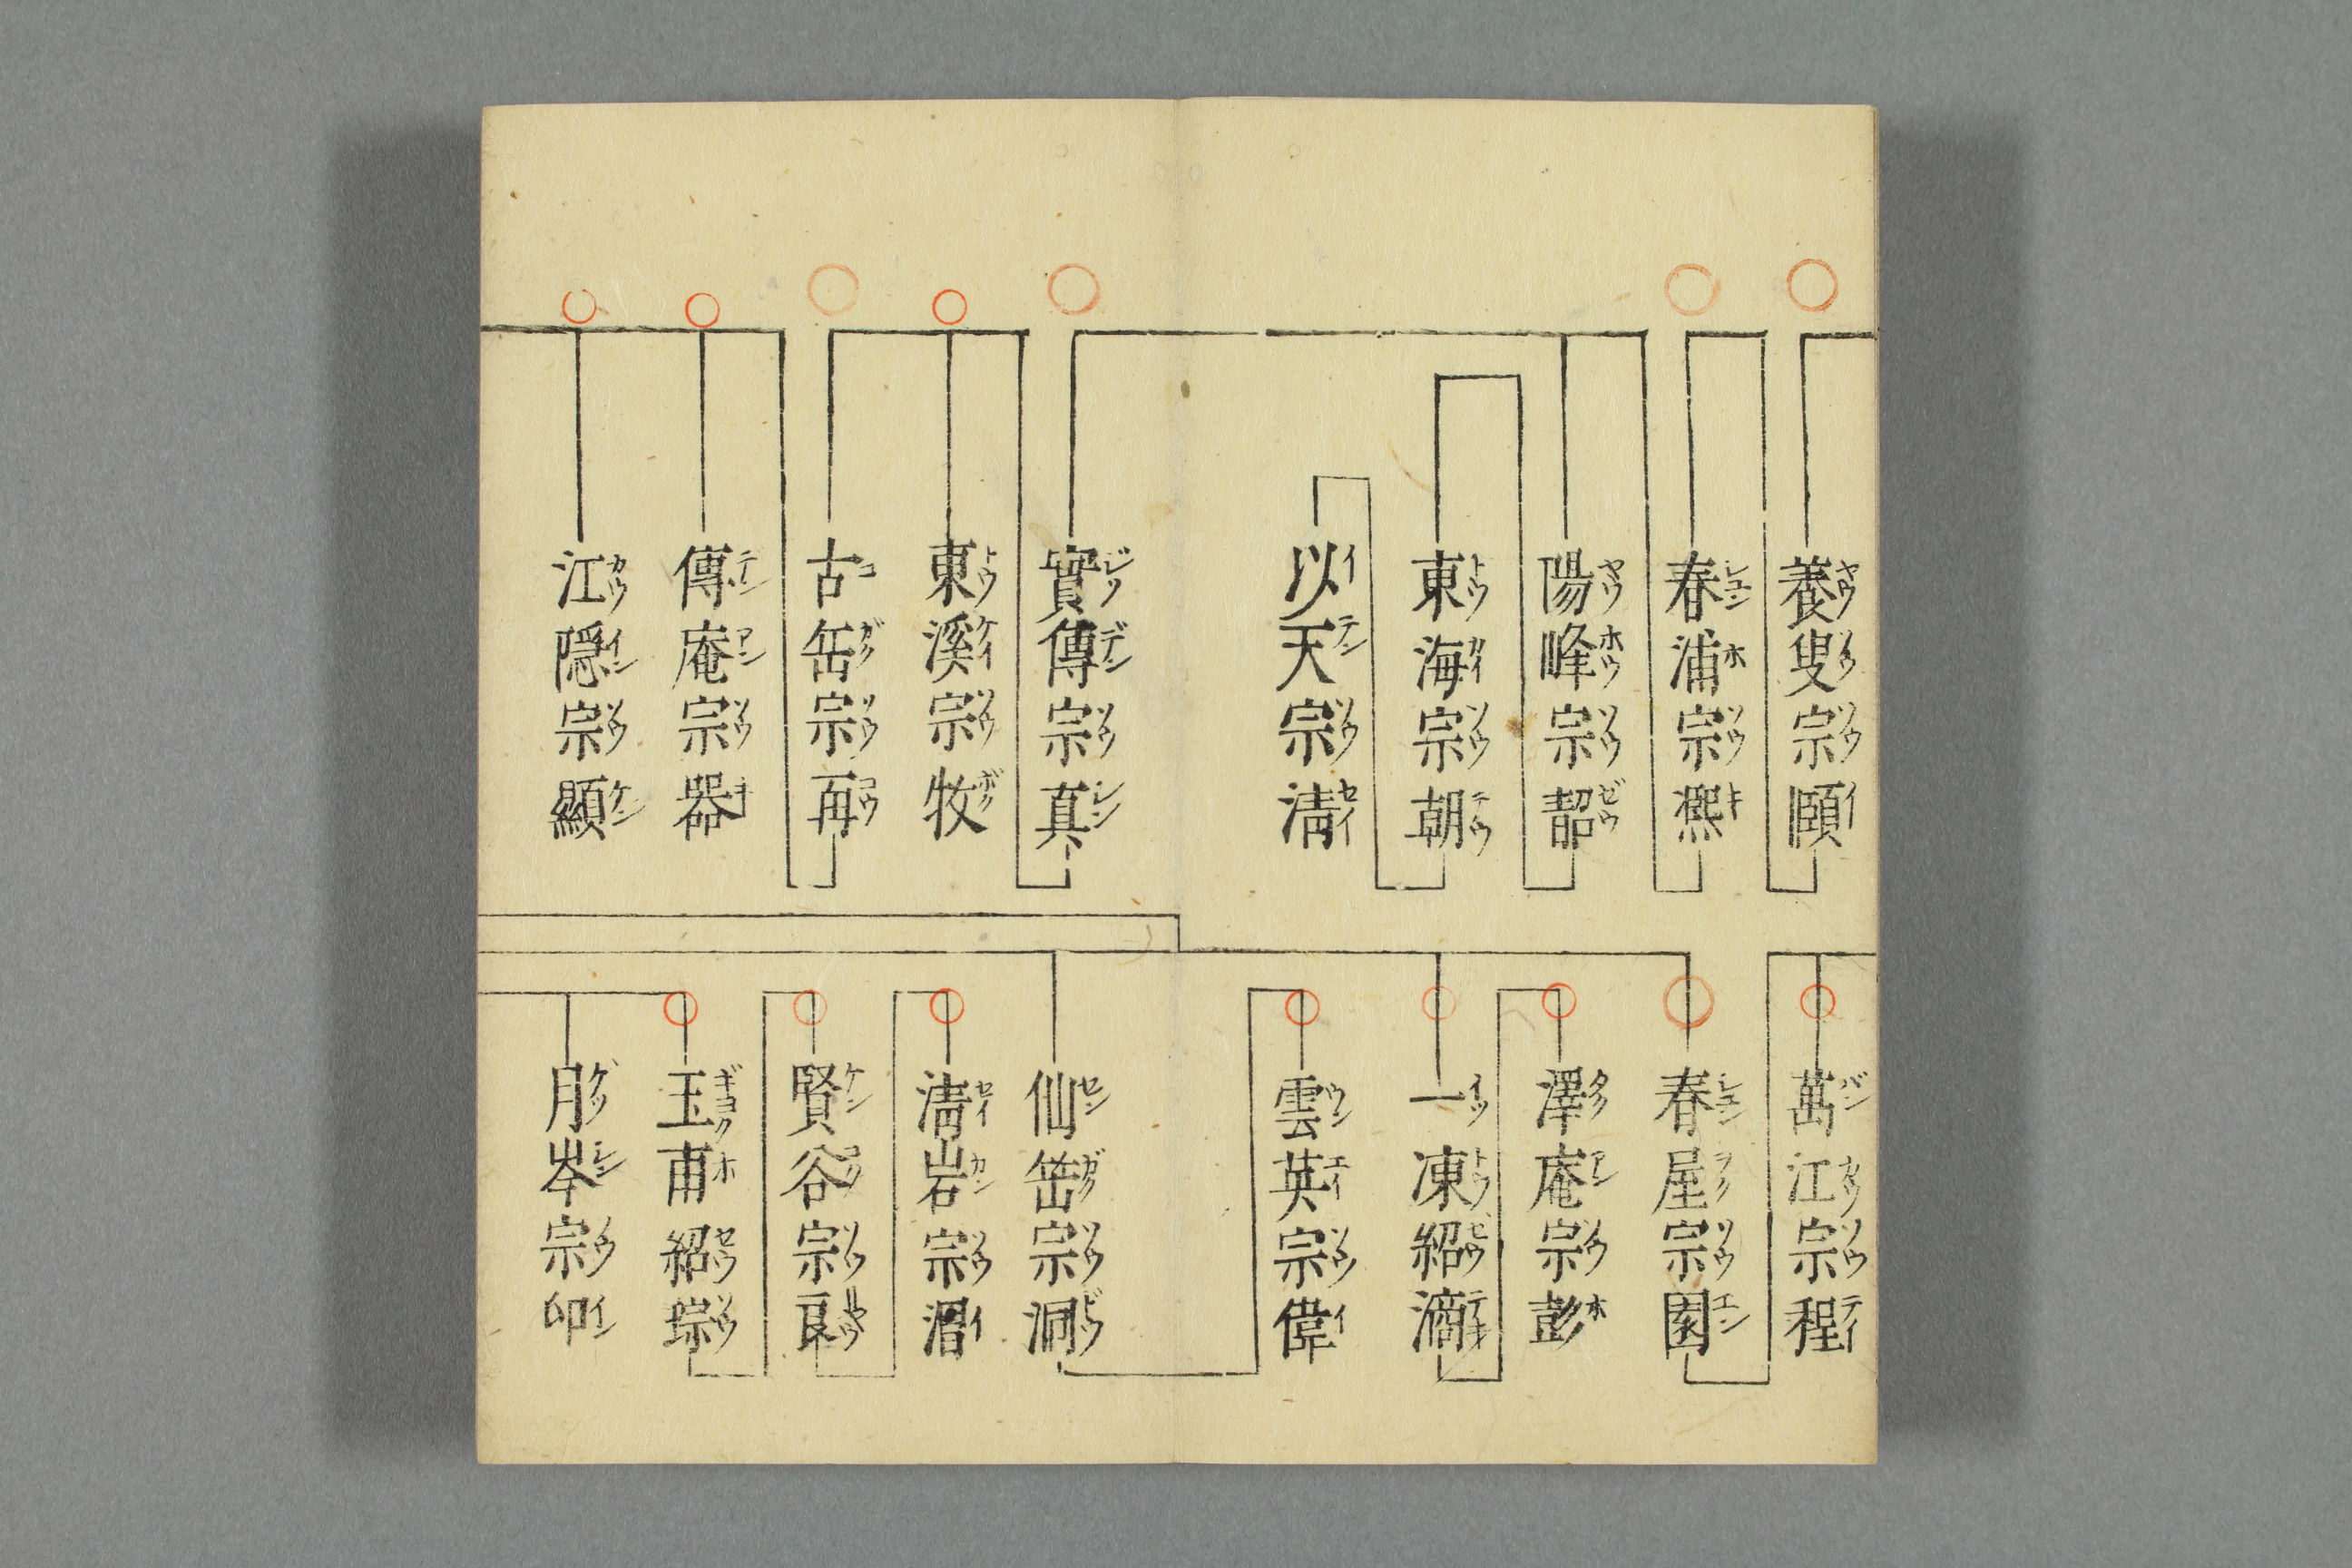 養叟宗頤
春浦宗凞
陽峰宗韶
東海宗朝
以天宗淸
實傳宗真
東溪宗牧
古缶宗再
傳庵宗器
江隠宗顯
萬江宗程
春屋宗園
澤庵宗彭
一凍紹滴
雲英宗偉
仙缶宗洞
淸岩宗渭
賢谷宗良
玉甫紹琮
月岑宗印